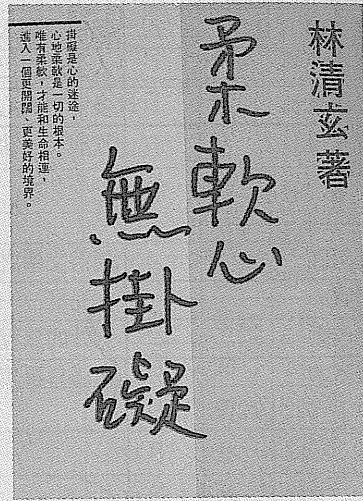 林清玄著
柔軟心
無掛礙
掛礙是心的迷途，
心地柔軟是一切的根本。
唯有柔軟，才能和生命相連，
進入一個更開闊、更美好的境界。